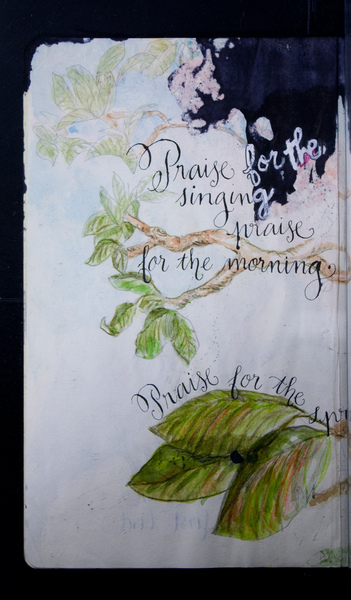 Praise for the
singing
praise
for the morning
Praise for the
spr